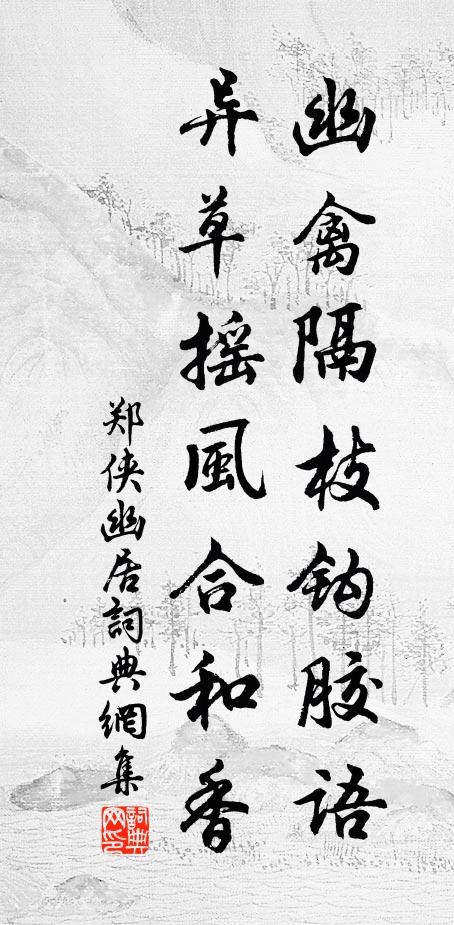 幽禽隔枝钩胶语
异草摇風合和香
郑侠幽居詞典網集
詞典網印